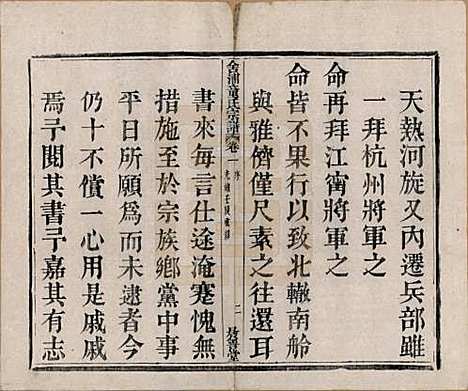 天熱河旋又內遷兵部雖
一拜杭州將軍之
命再拜江甯將軍之
命皆不果行以致北轍南舲
與雅儕僅尺素之往還耳
金浦童氏宗譜 卷一 序 二
書來每言仕途淹蹇愧無
措施至於宗族鄉黨中事
平日所願爲而未逮者今
仍十不償一心用是戚戚
焉予閱其書予嘉其有志